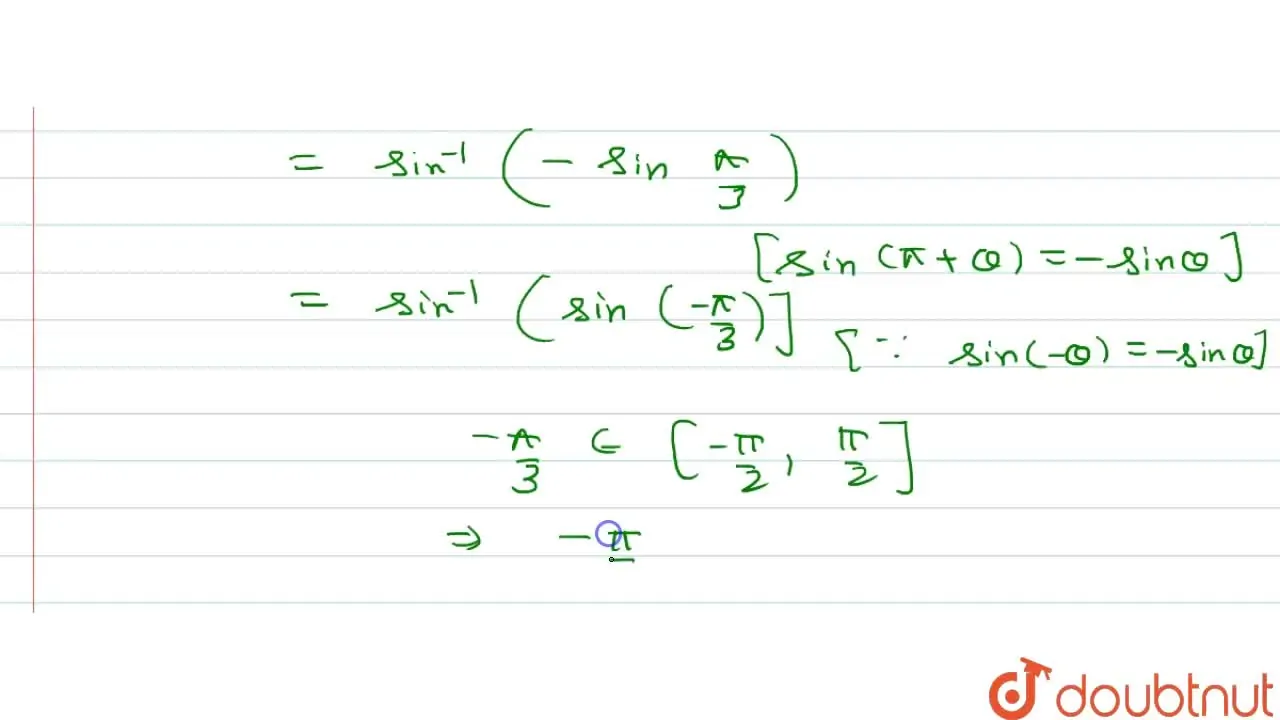 = sin⁻¹ (- sin π/3)
[sin (π + θ) = - sin θ]
= sin⁻¹ (sin (-π/3)]
[∵ sin(-θ) = - sin θ]
-π/3 ∈ [-π/2, π/2]
⇒ -π
doubtnut